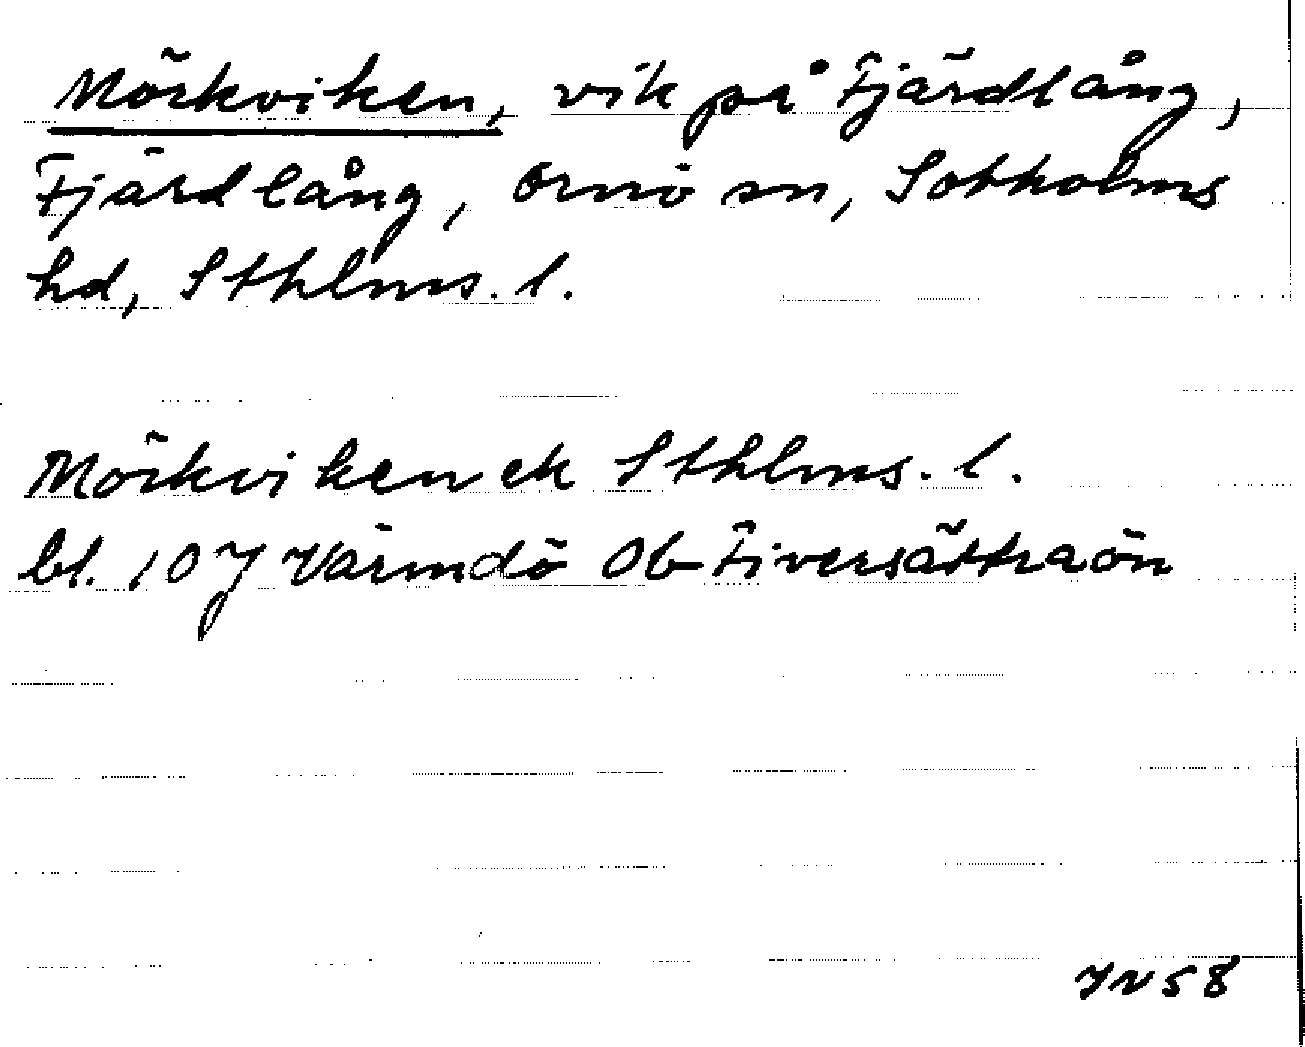 Mörkviken, vik på Fjärdlång,
Fjärdlång, Ornö sn, Sotholms
hd, Sthlms. l.
Mörkviken ek Sthlms. l.
bl. 107 Värmdö Ob Fiversättraön
YV58